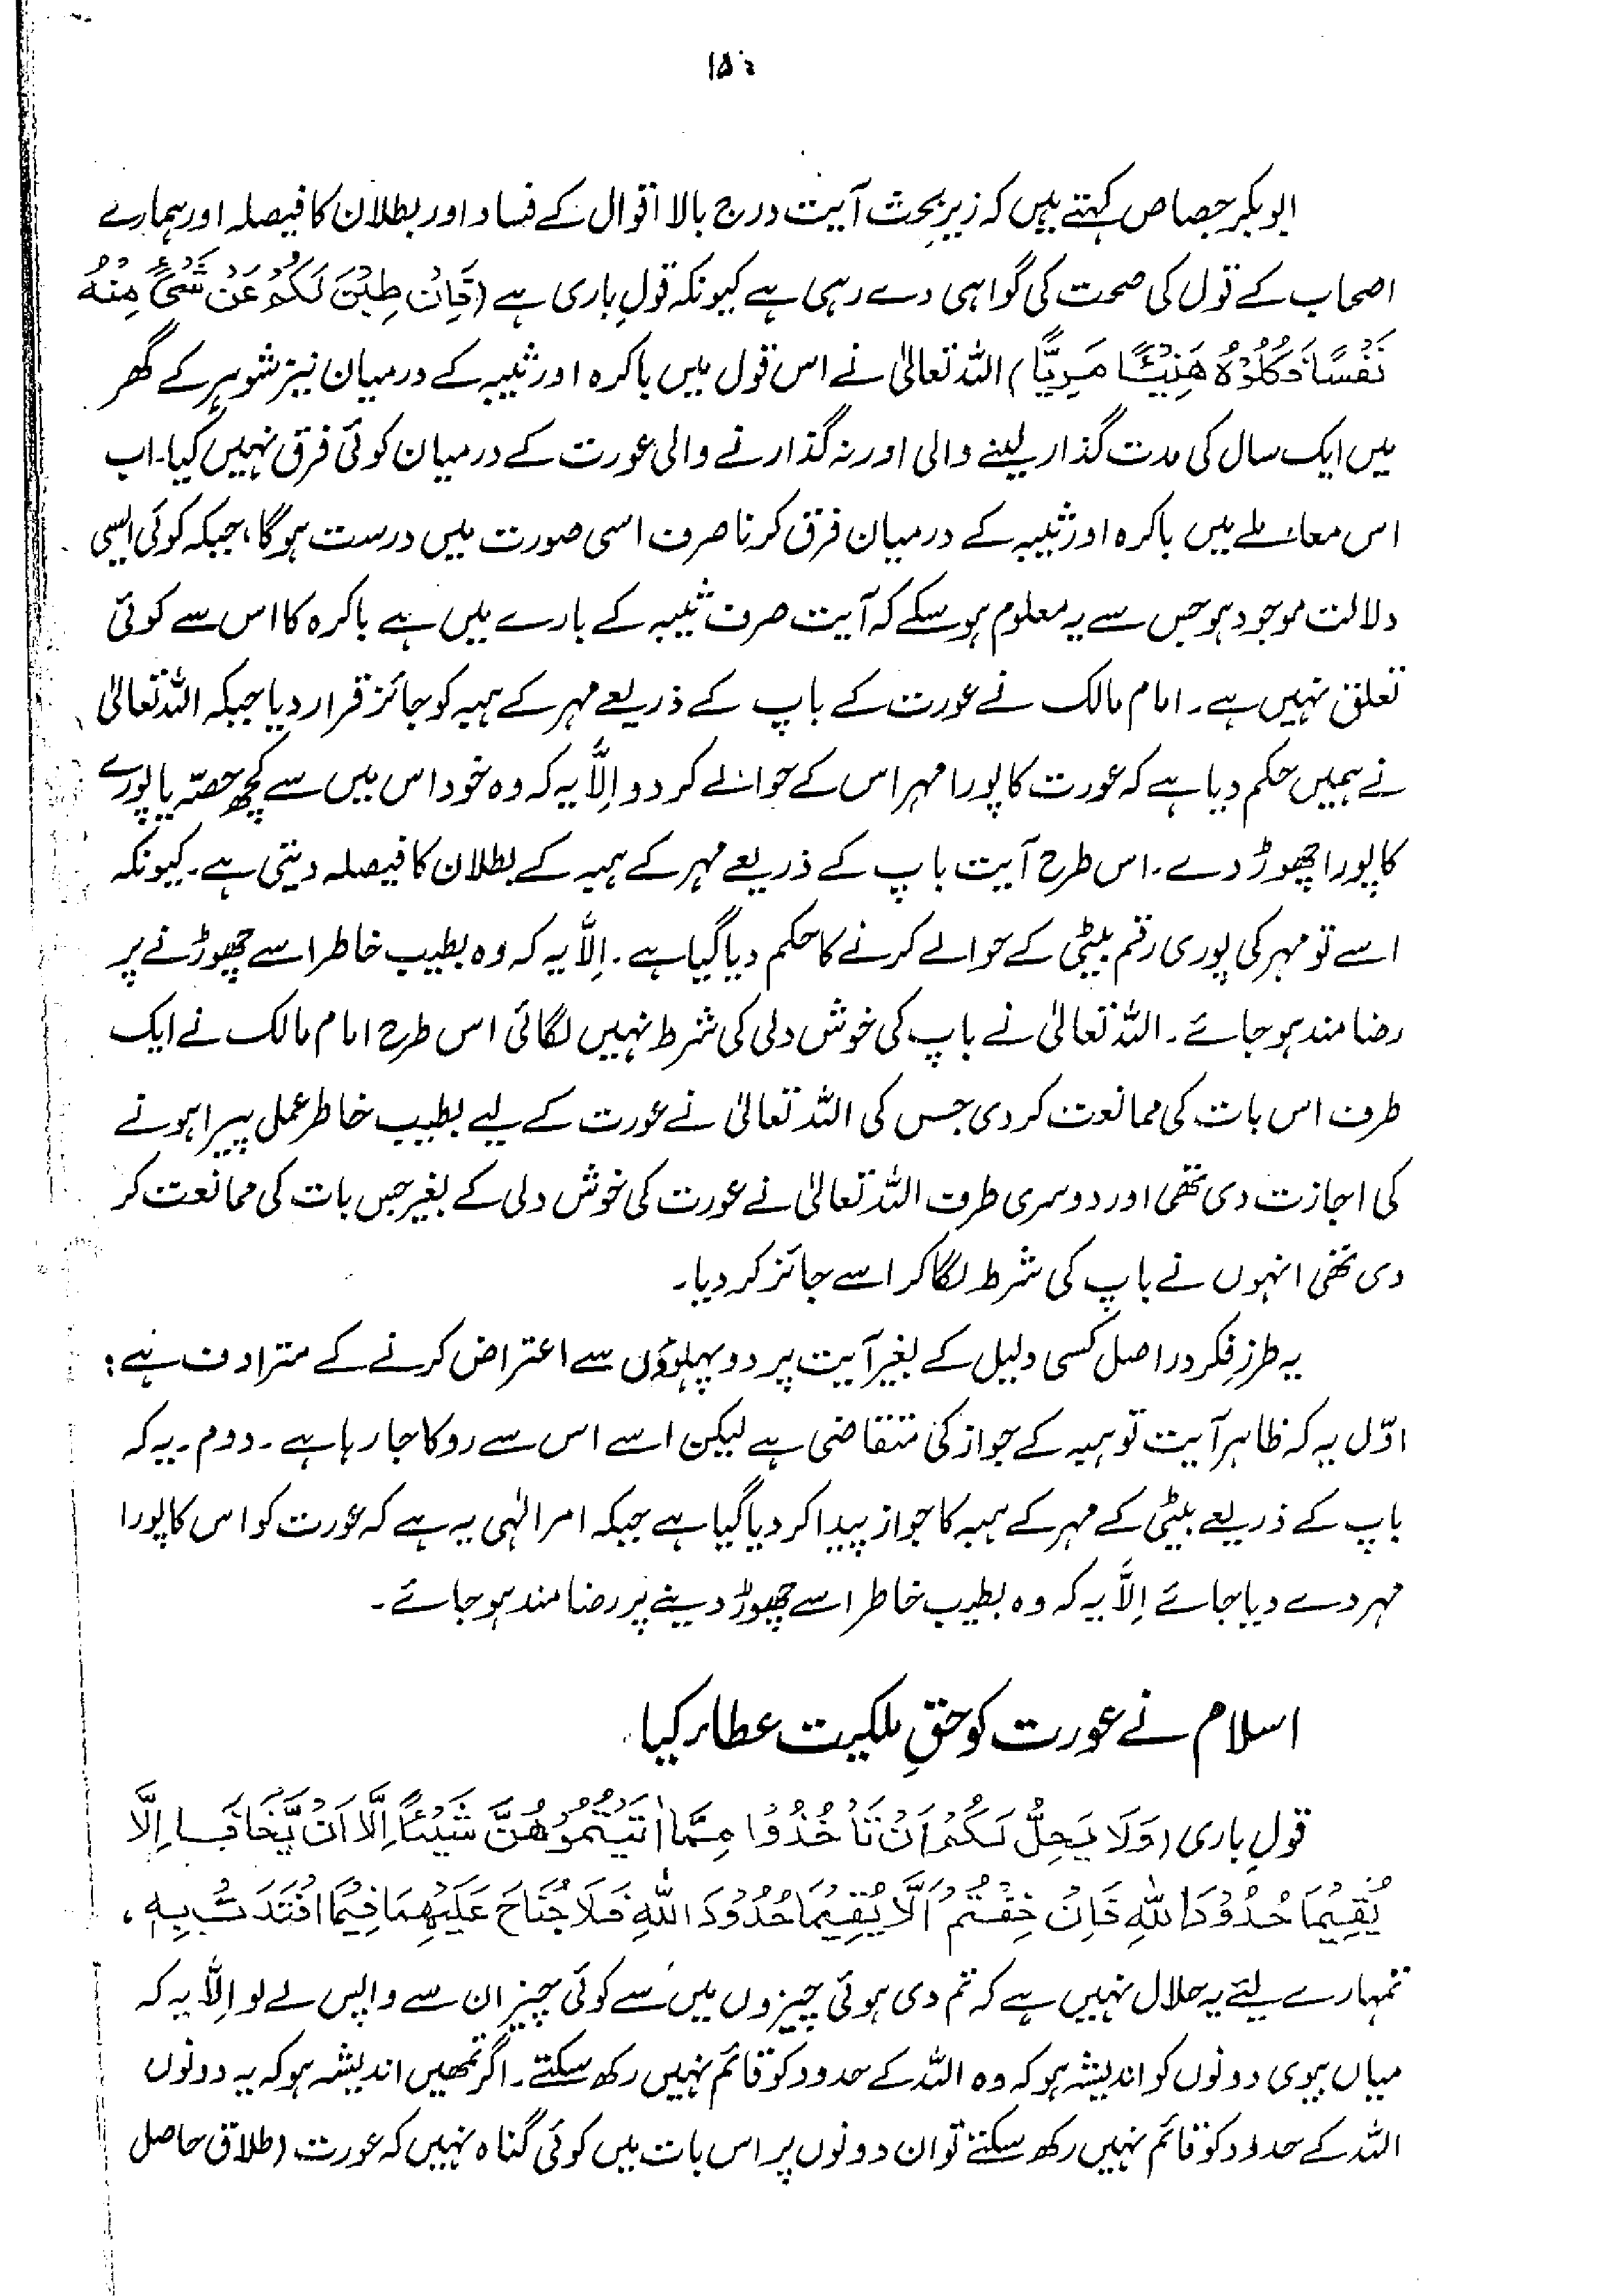 ۱۵۰
ابوبکر جصاص کہتے ہیں کہ زیرِ بحث آیت درج بالا اقوال کے فساد اور بطلان کا فیصلہ اور ہمارے
اصحاب کے قول کی صحت کی گواہی دے رہی ہے کیونکہ قولِ باری ہے (فَاِنْ طِبْنَ لَكُمْ عَنْ شَیْءٍ مِّنْهُ
نَفْسًا فَكُلُوْهُ هَنِيْئًا مَرِيًّا) اللہ تعالیٰ نے اس قول میں باکرہ اور ثیبہ کے درمیان نیز شوہر کے گھر
میں ایک سال کی مدت گذار لینے والی اور نہ گذارنے والی عورت کے درمیان کوئی فرق نہیں کیا۔ اب
اس معاملے میں باکرہ اور ثیبہ کے درمیان فرق کرنا صرف اسی صورت میں درست ہوگا، جبکہ کوئی ایسی
دلالت موجود ہو جس سے یہ معلوم ہوسکے کہ آیت صرف ثیبہ کے بارے میں ہے باکرہ کا اس سے کوئی
تعلق نہیں ہے۔ امام مالک نے عورت کے باپ کے ذریعے مہر کے ہبہ کو جائز قرار دیا جبکہ اللہ تعالیٰ
نے ہمیں حکم دیا ہے کہ عورت کا پورا مہر اس کے حوالے کر دو اِلَّا یہ کہ وہ خود اس میں سے کچھ حصّہ یا پورے
کا پورا چھوڑ دے۔ اس طرح آیت باپ کے ذریعے مہر کے ہبہ کے بطلان کا فیصلہ دیتی ہے۔ کیونکہ
اسے تو مہر کی پوری رقم بیٹی کے حوالے کرنے کا حکم دیا گیا ہے۔ اِلَّا یہ کہ وہ بطیب خاطر اسے چھوڑنے پر
رضامند ہو جائے۔ اللہ تعالیٰ نے باپ کی خوش دلی کی شرط نہیں لگائی اس طرح امام مالک نے ایک
طرف اس بات کی ممانعت کر دی جس کی اللہ تعالیٰ نے عورت کے لیے بطیب خاطر عمل پیرا ہونے
کی اجازت دی تھی اور دوسری طرف اللہ تعالیٰ نے عورت کی خوش دلی کے بغیر جس بات کی ممانعت کر
دی تھی انہوں نے باپ کی شرط لگا کر اسے جائز کر دیا۔
یہ طرزِ فکر دراصل کسی دلیل کے بغیر آیت پر دو پہلوؤں سے اعتراض کرنے کے مترادف ہے:
اوّل یہ کہ ظاہر آیت تو ہبہ کے جواز کی متقاضی ہے لیکن اسے اس سے روکا جا رہا ہے۔ دوم۔ یہ کہ
باپ کے ذریعے بیٹی کے مہر کے ہبہ کا جواز پیدا کر دیا گیا ہے جبکہ امر الٰہی یہ ہے کہ عورت کو اس کا پورا
مہر دے دیا جائے اِلَّا یہ کہ وہ بطیب خاطر اسے چھوڑ دینے پر رضامند ہو جائے۔
اسلام نے عورت کو حقِ ملکیت عطا کیا
قولِ باری (وَلَا يَحِلُّ لَكُمْ اَنْ تَأْخُذُوْا مِمَّا اٰتَيْتُمُوْهُنَّ شَيْئًا اِلَّا اَنْ يَّخَافَا اِلَّا
يُقِيْمَا حُدُوْدَ اللّٰهِ فَاِنْ خِفْتُمْ اَلَّا يُقِيْمَا حُدُوْدَ اللّٰهِ فَلَا جُنَاحَ عَلَيْهِمَا فِيْمَا افْتَدَتْ بِهٖ،
تمہارے لیئے یہ حلال نہیں ہے کہ تم دی ہوئی چیزوں میں سے کوئی چیز ان سے واپس لے لو اِلَّا یہ کہ
میاں بیوی دونوں کو اندیشہ ہو کہ وہ اللہ کے حدود کو قائم نہیں رکھ سکتے۔ اگر تمھیں اندیشہ ہو کہ یہ دونوں
اللہ کے حدود کو قائم نہیں رکھ سکتے تو ان دونوں پر اس بات میں کوئی گناہ نہیں کہ عورت (طلاق حاصل